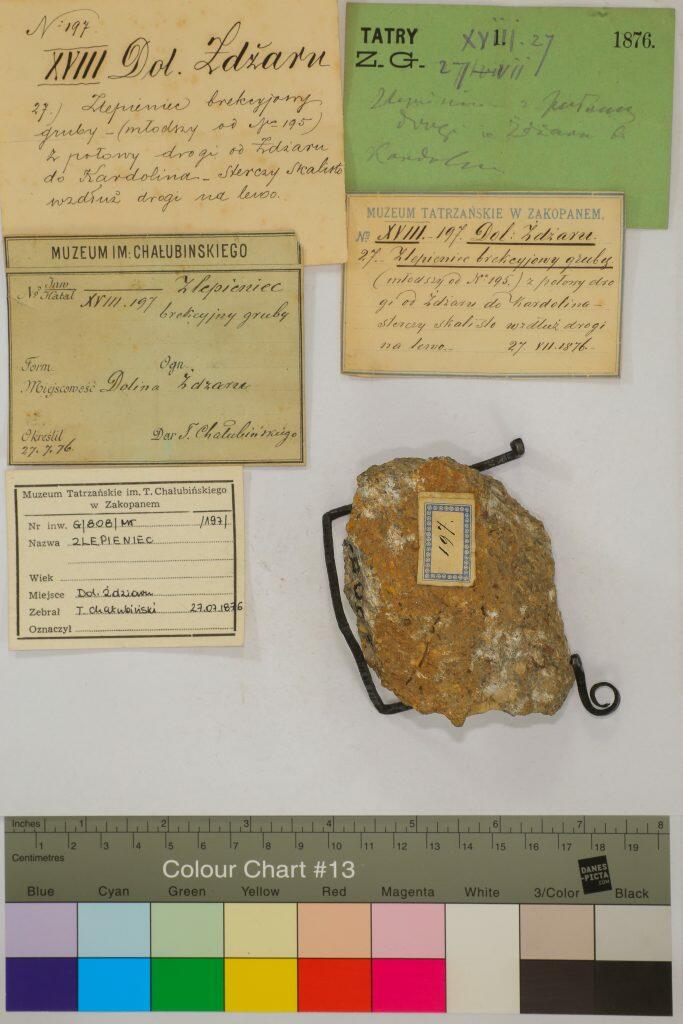 No 197
XVIII Dol. Zdžaru
27.) Zlepieniec brekcyjowy
gruby - (młodszy od No 195)
z połowy drogi od Zdžaru
do Kardolina - sterczy skalisto
wzdłuż drogi na lewo.
TATRY XVIII.27 1876.
Z. G. 27/VII
z
drogi w Zdžaru
Kardolin
MUZEUM TATRZAŃSKIE W ZAKOPANEM,
№ XVIII. 197. Dol: Zdžaru.
27. Zlepieniec brekcyjowy gruby
(młodszy od No 195.) z połowy dro
gi od Zdžaru do Kardolina -
sterczy skalisto wzdłuż drogi
na lewo. 27. VII. 1876.
MUZEUM IM: CHAŁUBIŃSKIEGO
No Inw Katal XVIII.197 Zlepieniec
brekcyjny gruby
Form. Ogn.
Miejscowość Dolina Ždżaru
Określił Dar T. Chałubińskiego
27.7.76.
Muzeum Tatrzańskie im. T. Chałubińskiego
w Zakopanem
Nr inw. G/808/MT /197/
Nazwa ZLEPIENIEC
Wiek
Miejsce Dol. Ździaru
Zebrał T. Chałubiński 27.07.1876
Oznaczył
197.
Inches 1 2 3 4 5 6 7 8
1 2 3 4 5 6 7 8 9 10 11 12 13 14 15 16 17 18 19
Centimetres
Colour Chart #13
DANES
-PICTA
.COM
Blue Cyan Green Yellow Red Magenta White 3/Color Black